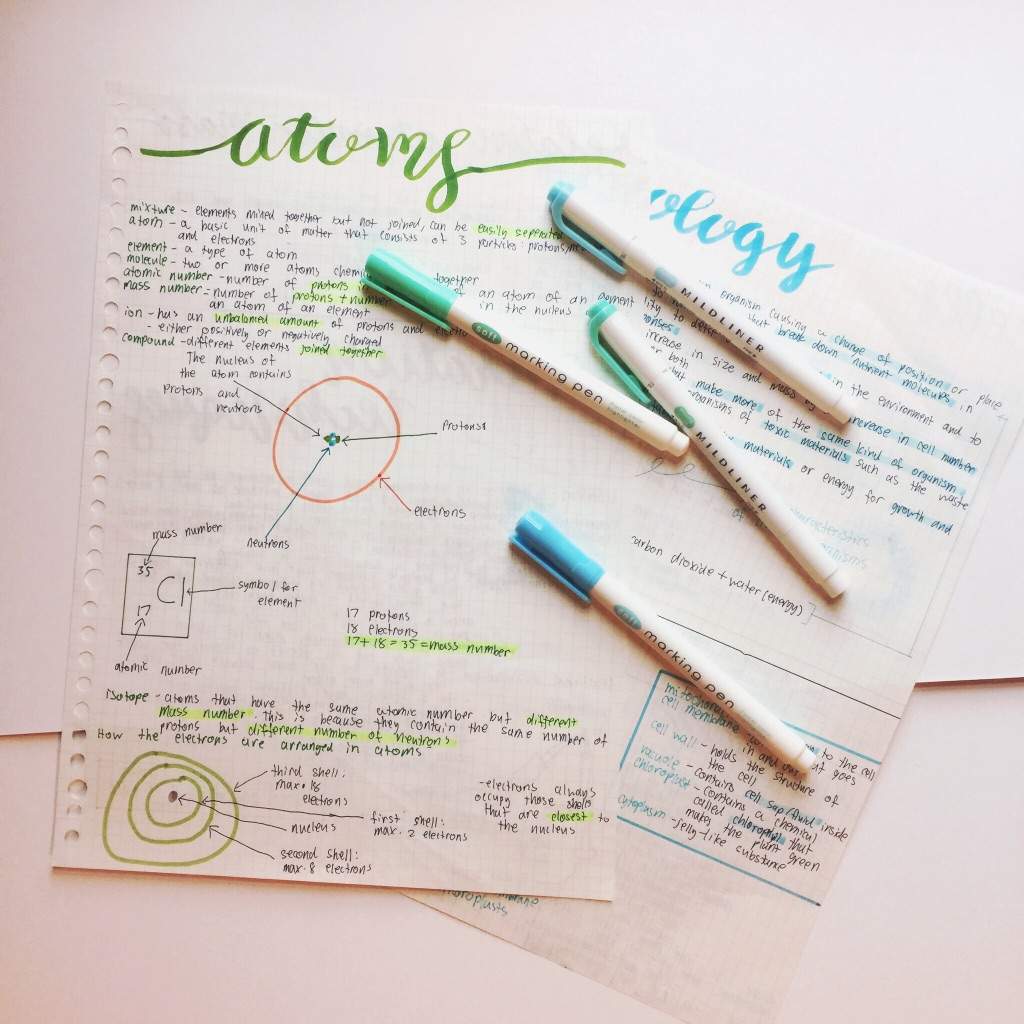 atoms
mixture - elements mixed together but not joined, can be easily seperated
atom - a basic unit of matter that consists of 3 particles: protons,
and electrons
element - a type of atom
molecule - two or more atoms together
atomic number - number of protons in of an atom of an element
mass number = number of protons + in the nucleus
an atom of an element
ion - has an unbalanced amount of protons and
- either positively or negatively charged
compound - different elements joined together
The nucleus of
the atom contains
Protons and
neutrons
Protons
electrons
neutrons
mass number
35
Cl
17
symbol for
element
atomic number
17 protons
18 electrons
17 + 18 = 35 = mass number
isotope - atoms that have the same atomic number but different
mass number. this is because they contain the same number of
protons but different number of neutrons
How the electrons are arranged in atoms
third shell:
max. 18
electrons
nucleus
first shell:
max. 2 electrons
second shell:
max. 8 electrons
- electrons always
occupy those shells
that are closest to
the nucleus
ology
organism causing a change of position or place
that break down nutrient molecules in
in the environment and to
increase in size and mass by increase in cell number
or both
but make more of the same kind of organism
organisms of toxic materials such as the waste
materials or energy for growth and
characteristics
carbon dioxide + water (energy)
cell membrane
in and out goes
to the cell
cell wall - holds the structure of
the cell
vacuole - contains cell sap/fluid inside
chloroplast - contains a chemical
called chlorophyl that
makes the plant green
cytoplasm - jelly-like substance
soft marking pen
MILDLINER
MILDLINER
soft marking pen